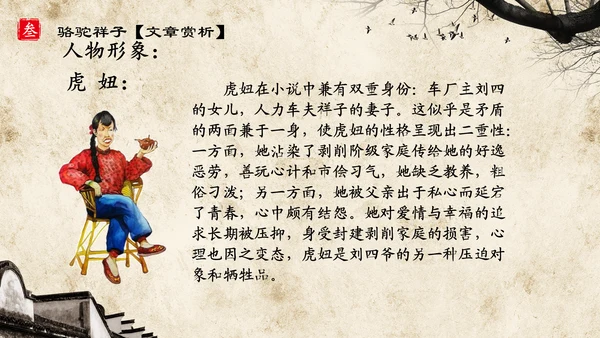 叁 骆驼祥子【文章赏析】
人物形象：
虎 妞：
虎妞在小说中兼有双重身份：车厂主刘四
的女儿，人力车夫祥子的妻子。这似乎是矛盾
的两面兼于一身，使虎妞的性格呈现出二重性：
一方面，她沾染了剥削阶级家庭传给她的好逸
恶劳，善玩心计和市侩习气，她缺乏教养，粗
俗刁泼；另一方面，她被父亲出于私心而延宕
了青春，心中颇有结怨。她对爱情与幸福的追
求长期被压抑，身受封建剥削家庭的损害，心
理也因之变态，虎妞是刘四爷的另一种压迫对
象和牺牲品。